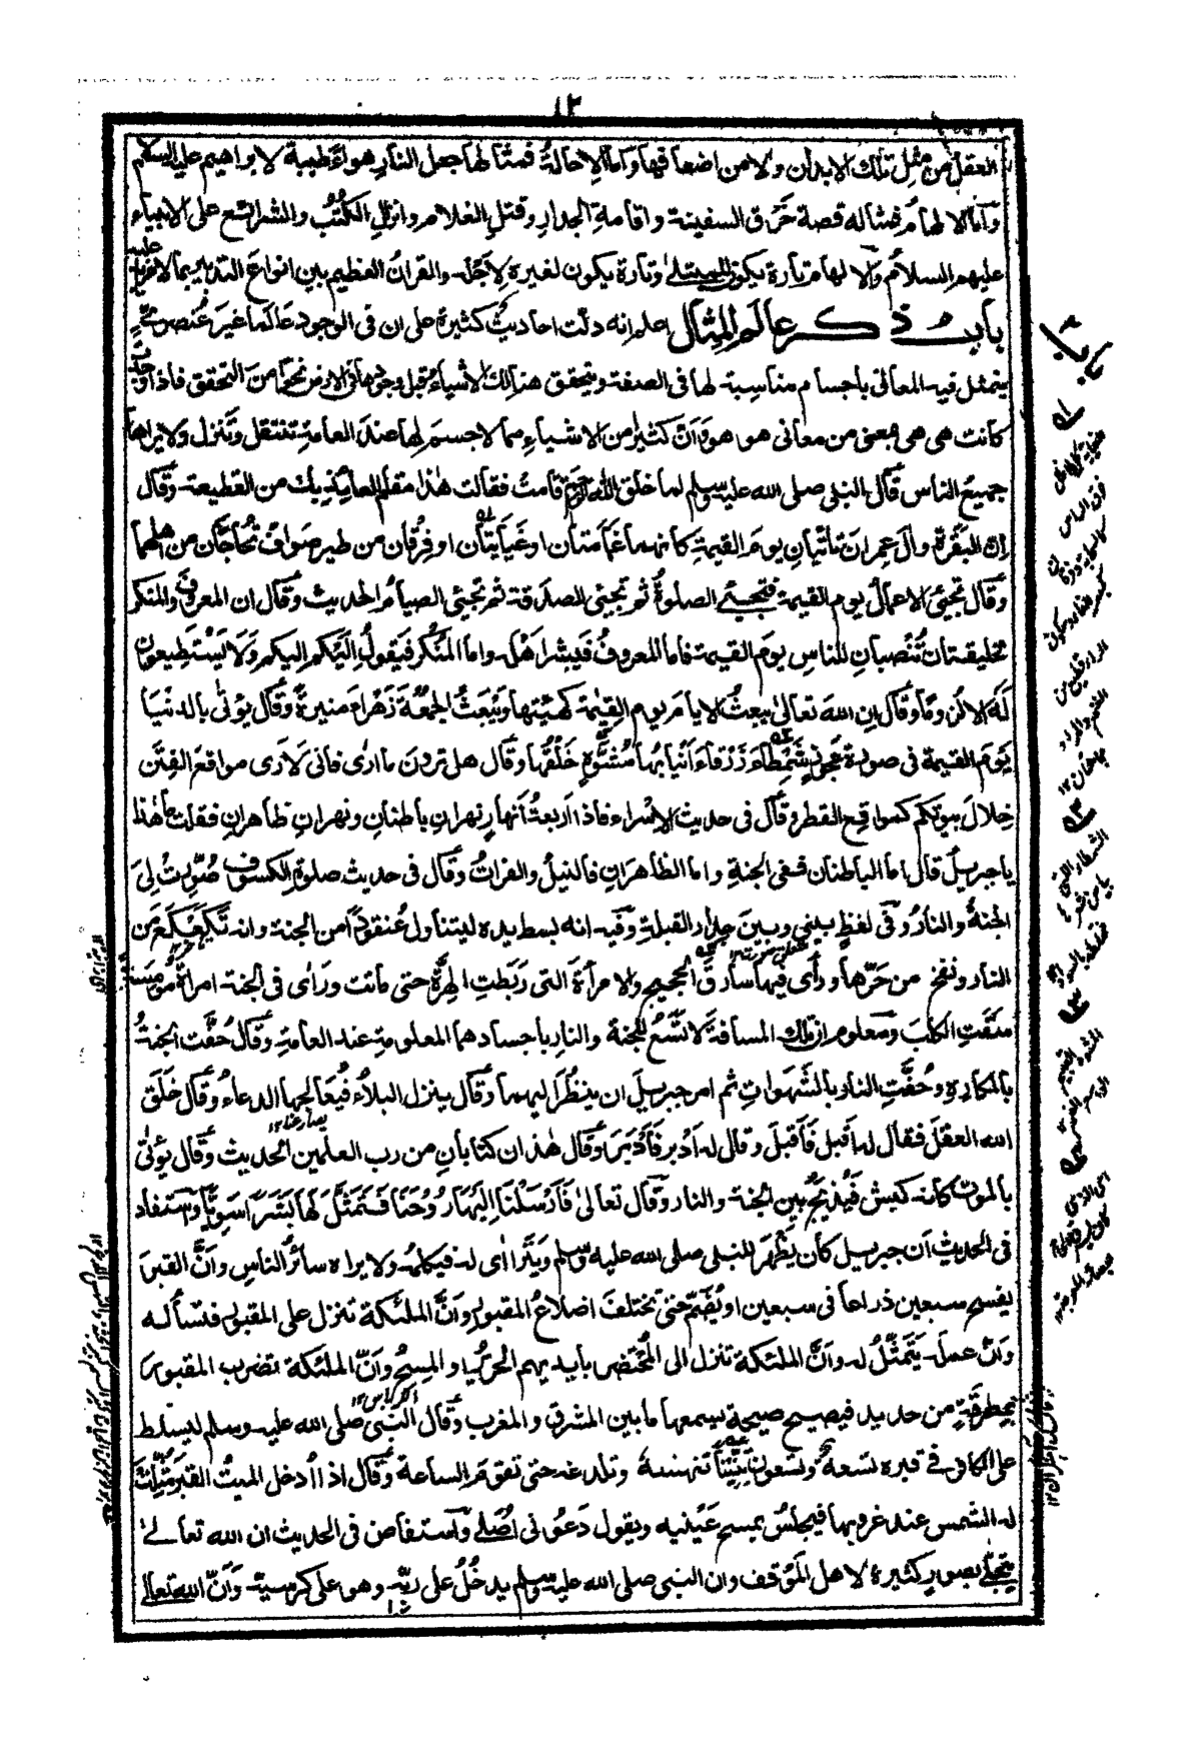 ١٣
العقل من مثل تلك الابدان ولا من اضعافها واما الاحالة فمثالها جعل النار هواء طيبة لابراهيم عليه السلام
واما الالهام فمثاله قصة خرق السفينة واقامة الجدار وقتل الغلام وانزل الكتب والشرائع على الانبياء
عليهم السلام والالهام تارة يكون للمبتلى وتارة يكون لغيره لاجله والقران العظيم بين انواع التدبير بما لا مزيد عليه
باب ذكر عالم المثال اعلم انه دلت احاديث كثيرة على ان فى الوجود عالما غير عنصرى
يتمثل فيه المعانى باجسام مناسبة لها فى الصفة ويتحقق هنالك الاشياء قبل وجودها فى الارض نحوا من التحقق فاذا وجدت
كانت هى هى بمعنى من معانى هو هو وان كثيرا من الاشياء مما لا جسم لها عند العامة تنتقل وتنزل ولا يراها
جميع الناس قال النبى صلى الله عليه وسلم لما خلق الله الرحم قامت فقالت هذا مقام العائذ بك من القطيعة وقال
ان البقرة وال عمران تأتيان يوم القيمة كانهما غمامتان او غيايتان او فرقان من طير صواف تحاجان عن اهلهما
وقال تجيئ الاعمال يوم القيمة فتجيئ الصلوة ثم تجيئ الصدقة ثم تجيئ الصيام الحديث وقال ان المعروف والمنكر
لخليقتان تنصبان للناس يوم القيمة فاما المعروف فيبشر اهله واما المنكر فيقول اليكم اليكم ولا يستطيعون
له الا لزوما وقال ان الله تعالى يبعث الايام يوم القيمة كهيئتها ويبعث الجمعة زهراء منيرة وقال يؤتى بالدنيا
يوم القيمة فى صورة عجوز شمطاء زرقاء انيابها مشوّه خلقها وقال هل ترون ما ارى فانى لارى مواقع الفتن
خلال بيوتكم كمواقع القطر وقال فى حديث الاسراء فاذا اربعة انهار نهران باطنان ونهران ظاهران فقلت ما هذا
يا جبريل قال اما الباطنان ففى الجنة واما الظاهران فالنيل والفرات وقال فى حديث صلوة الكسوف صورت لى
الجنة والنار وفى لفظ بينى وبين جدار القبلة وفيه انه بسط يده ليتناول عنقودا من الجنة وانه تكعكع من
النار ونفخ من حرها ورأى فيها سارق الحجيج والامرأة التى ربطت الهرة حتى ماتت ورأى فى الجنة امرأة مومسة
سقت الكلب ومعلوم ان تلك المسافة لا تتسع للجنة والنار باجسادهما المعلومة عند العامة وقال حفت الجنة
بالمكاره وحفت النار بالشهوات ثم امر جبريل ان ينظر اليهما وقال ينزل البلاء فيعالجها الدعاء وقال خلق
الله العقل فقال له اقبل فاقبل وقال له ادبر فادبر وقال هذان كتابان من رب العلمين الحديث وقال يؤتى
بالموت كانه كبش فيذبح بين الجنة والنار وقال تعالى فارسلنا اليها روحنا فتمثل لها بشرا سويا واستفاد
فى الحديث ان جبريل كان يظهر للنبى صلى الله عليه وسلم ويتراأى له فيكلمه ولا يراه سائر الناس وان القبر
يفسح سبعين ذراعا فى سبعين او يضم حتى تختلف اضلاع المقبور وان الملئكة تنزل على المقبور فتسأله
وان عمله يتمثل له وان الملئكة تنزل الى المحتضر بايديهم الحرير او المسح وان الملئكة تضرب المقبور
بمطرقة من حديد فيصيح صيحة يسمعها ما بين المشرق والمغرب وقال النبى صلى الله عليه وسلم ليسلط
على الكافر فى قبره تسعة وتسعون تنينا تنهسه وتلدغه حتى تقوم الساعة وقال اذا ادخل الميت القبر مثلت
له الشمس عند غروبها فيجلس يمسح عينيه ويقول دعونى اصلى واستفاض فى الحديث ان الله تعالى
يتجلى بصور كثيرة لاهل الموقف وان النبى صلى الله عليه وسلم يدخل على ربه وهو على كرسيه وان الله تعالى